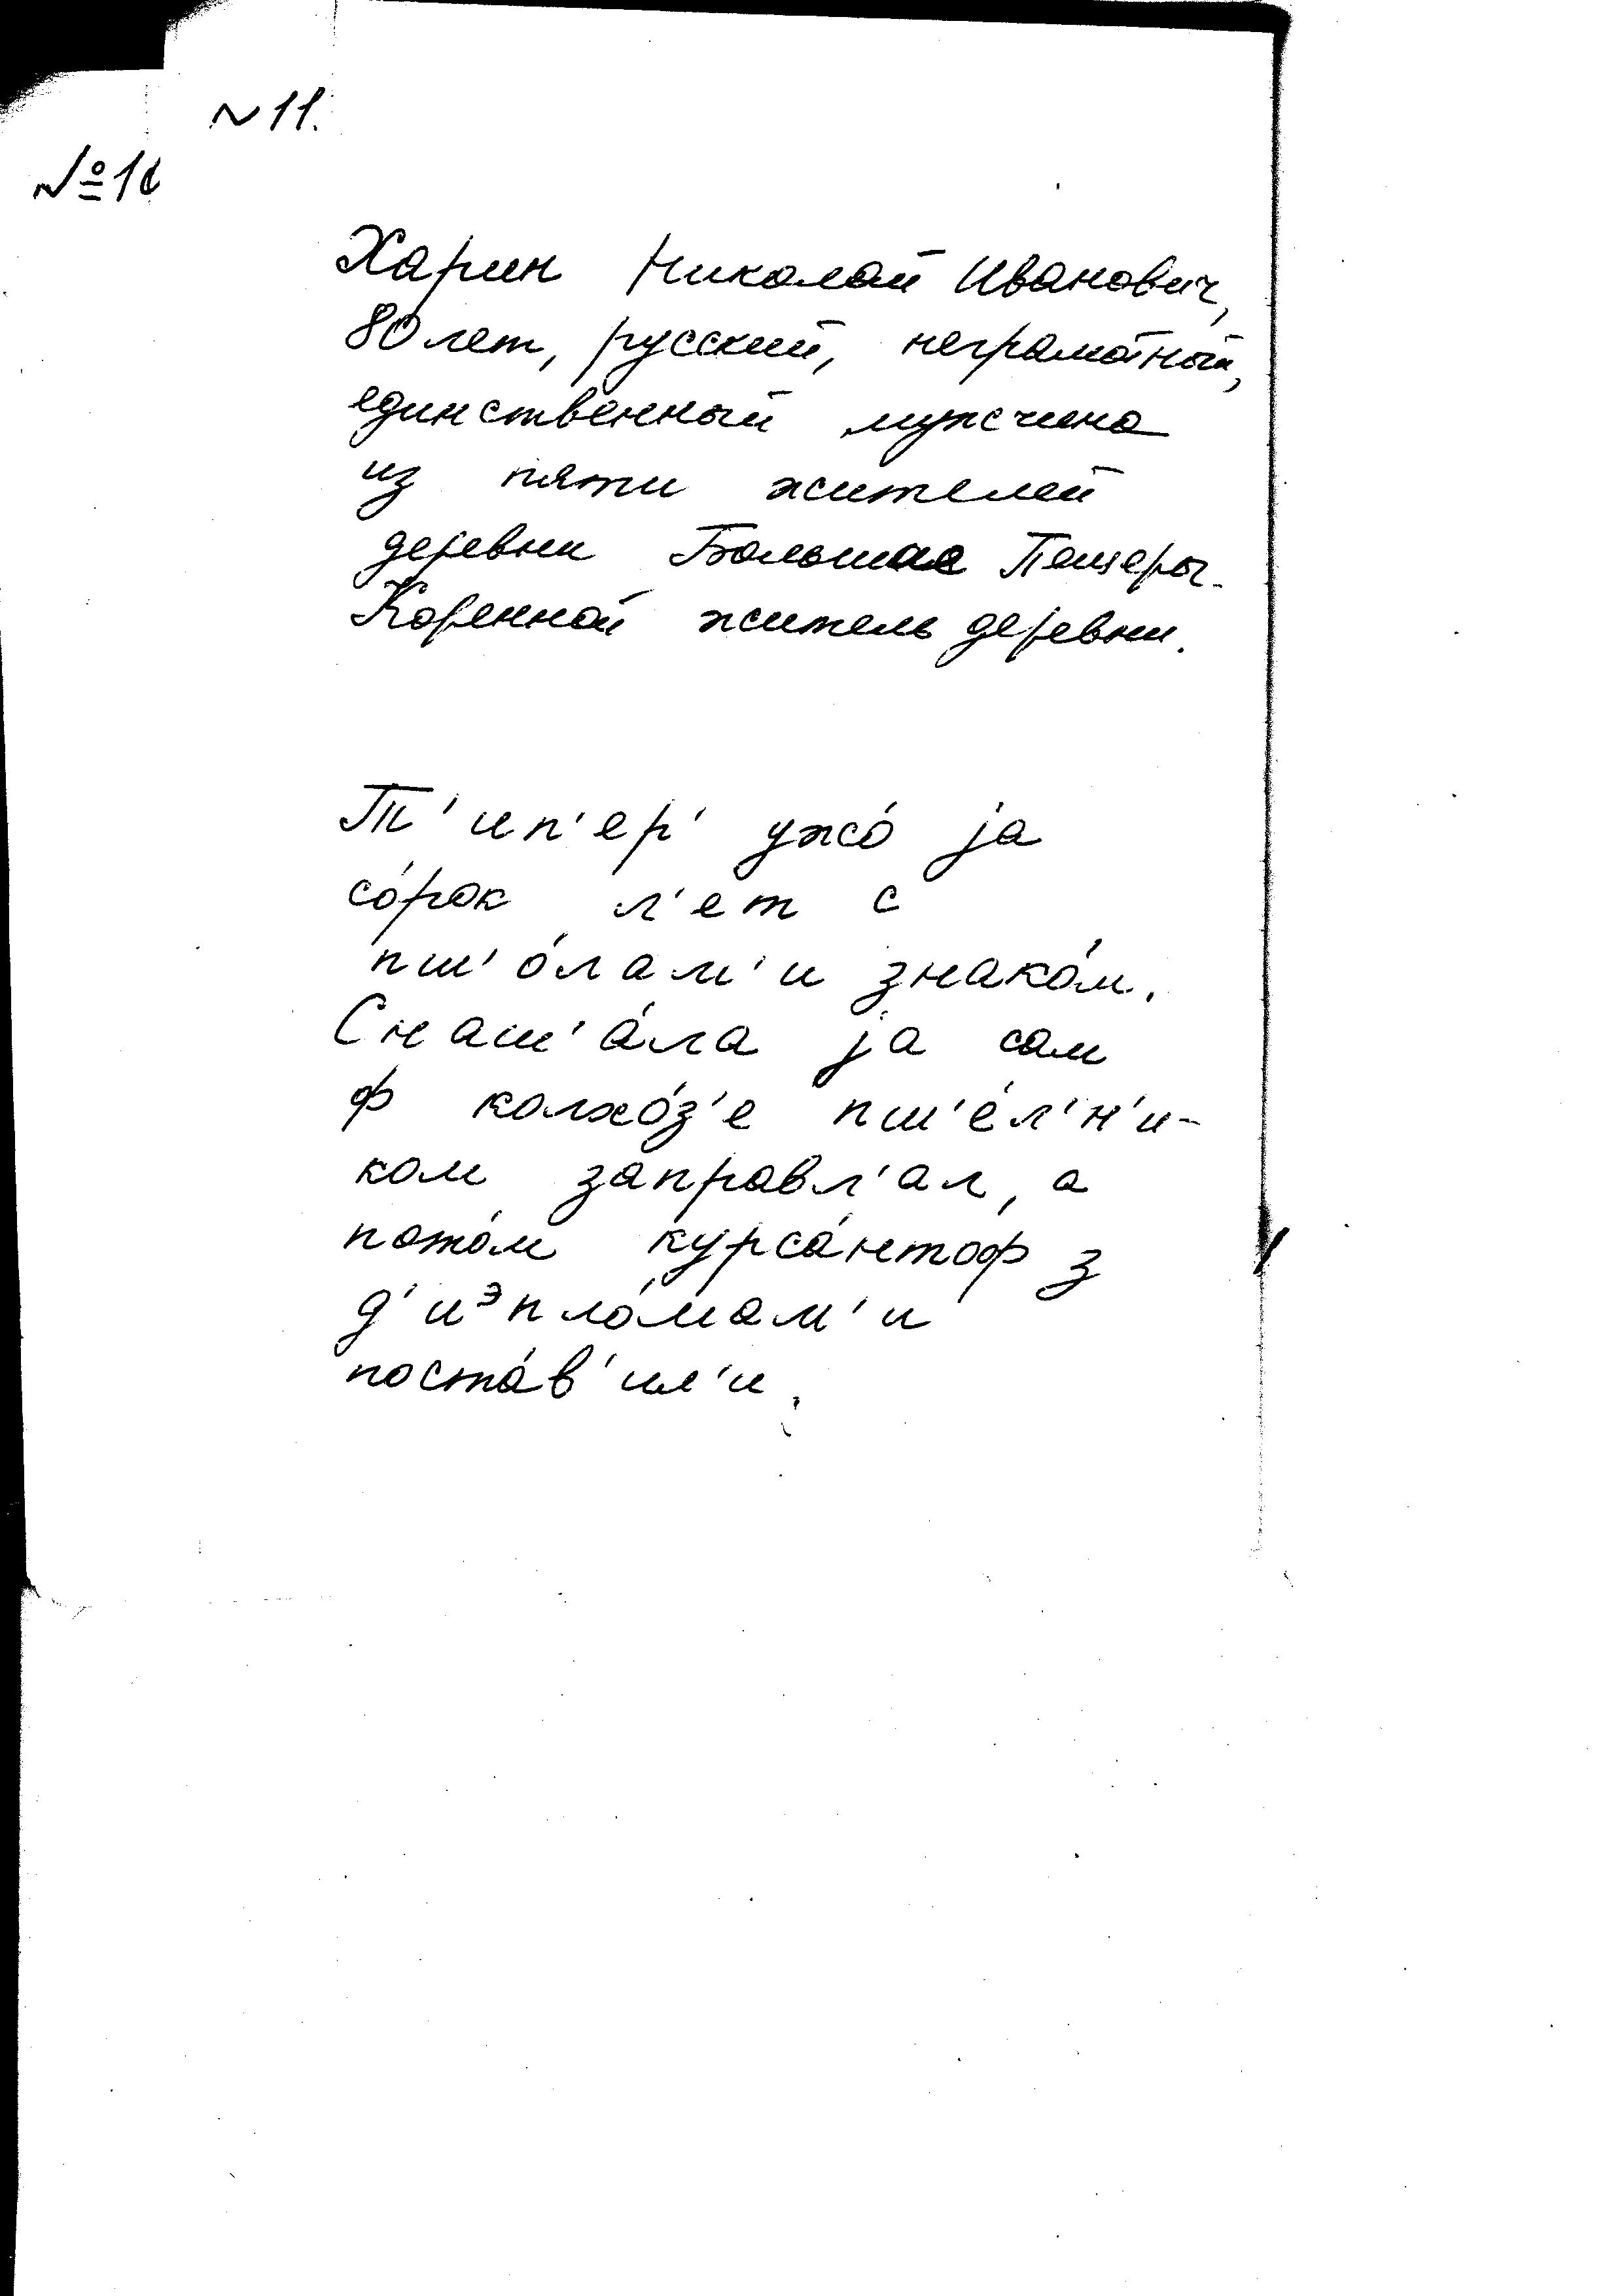 №11.
№1
Харин Николай Иванович,
80 лет, русский, неграмотный,
единственный мужчина
из пяти жителей
деревни Большие Пещеры.
Коренной житель деревни.
Т'ип'ер' ужо́ jа
со́рок л'ет с
пш'о́лам'и знако́м.
Снаш'а́ла jа сам
ф колхо́з'е пш'е́л'н'и-
ком заправл'ал, а
пото́м курса́нтоф з
д'иᵊпло́мам'и
поста́в'ил'и.